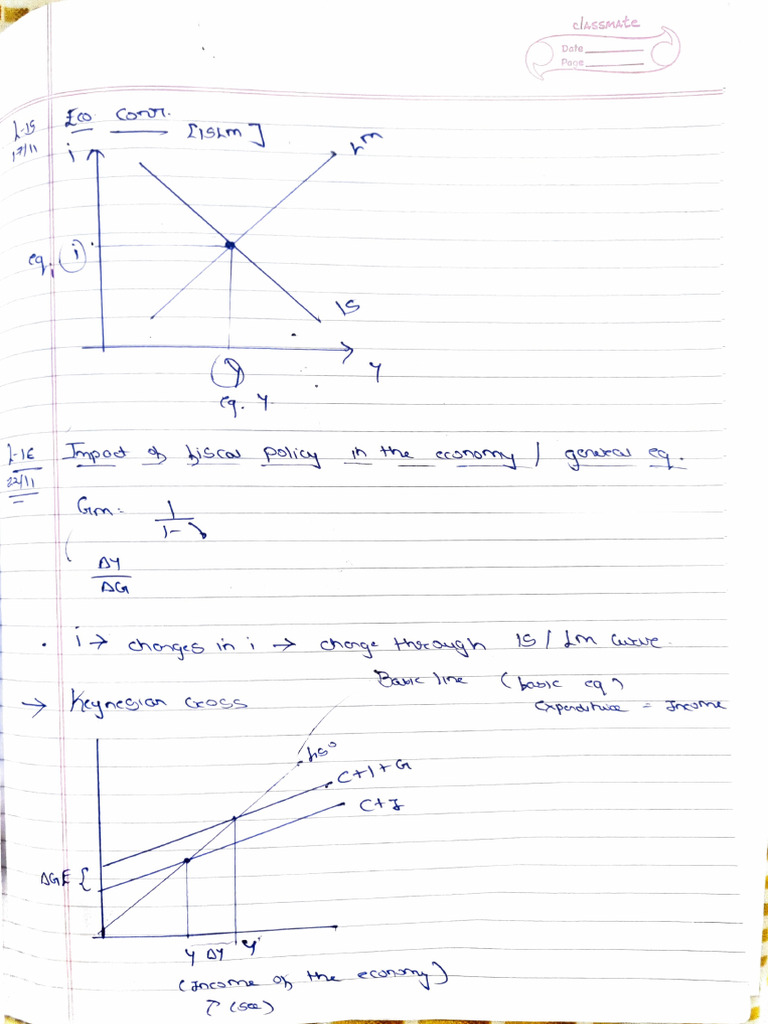 classmate
Date
Page
L-15
17/11
Eco Contr.
[ISLM]
i
LM
eq. i
IS
Y
Y
eq. Y
L-16
22/11
Impact of fiscal policy in the economy / general eq.
Gm: 1
1-
ΔY
ΔG
. i → changes in i → change through IS / LM curve.
Basic line (basic eq)
→ Keynesian Cross
Expenditure = Income
45°
C+I+G
C+I
ΔGE {
Y ΔY Y'
(Income of the economy)
↑ (see)